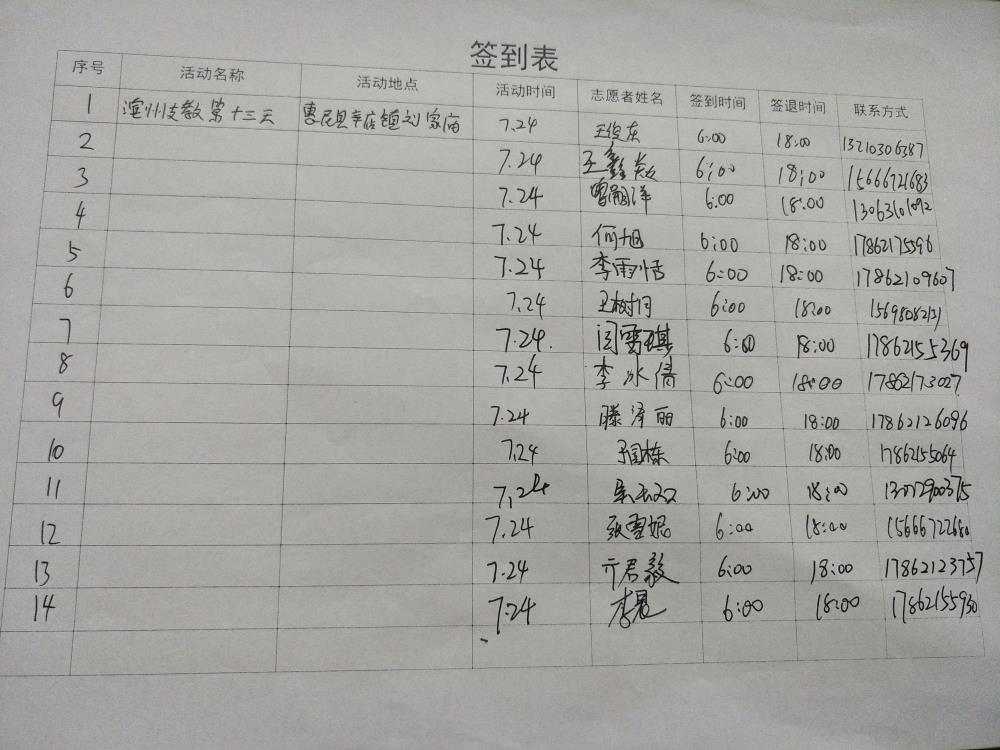 签到表
序号 活动名称 活动地点 活动时间 志愿者姓名 签到时间 签退时间 联系方式
1 滨州支教第十三天 惠民县辛店镇刘家庙 7.24 王俊东 6:00 18:00 13210306387
2 7.24 王鑫焱 6:00 18:00 15666721683
3 7.24 6:00 18:00 13063101092
4 7.24 何旭 6:00 18:00 17862175596
5 7.24 李雨恬 6:00 18:00 17862109607
6 7.24 王树月 6:00 18:00 15698082131
7 7.24. 闫雪琪 6:00 18:00 17862155369
8 7.24 李冰倩 6:00 18:00 17862173027
9 7.24 滕泽丽 6:00 18:00 17862126096
10 7.24 6:00 18:00 17862155064
11 7.24 6:00 18:00
12 7.24 张雪妮 6:00 18:00 15666722680
13 7.24 亓君毅 6:00 18:00 17862123757
14 7.24 李晨 6:00 18:00 17862155930